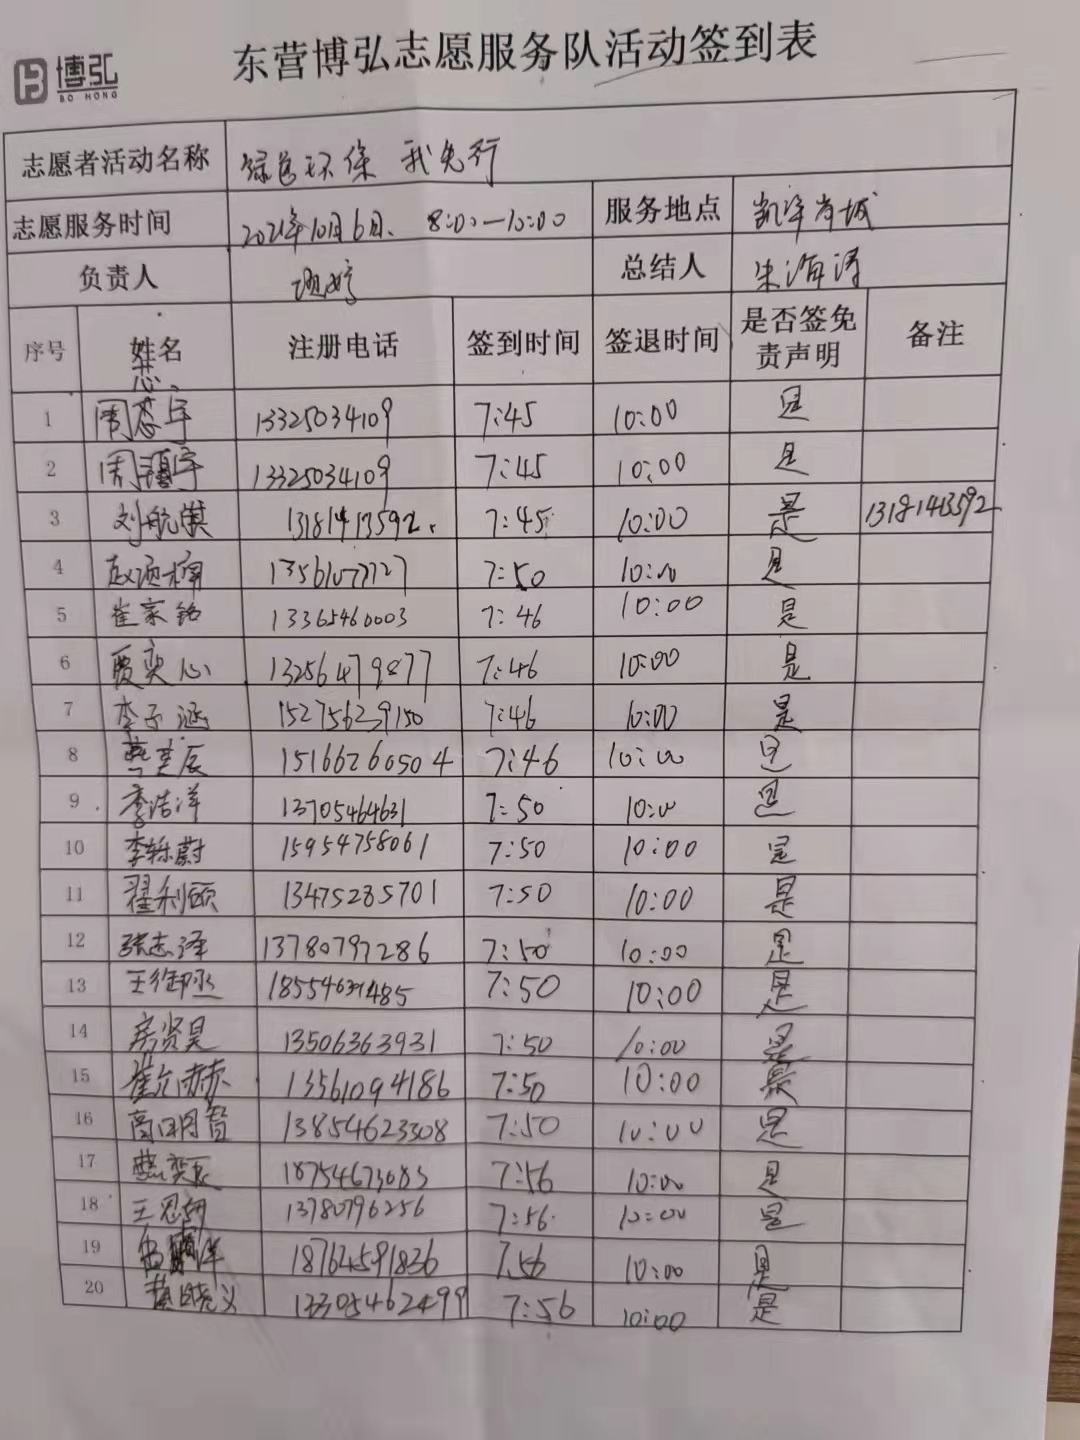 博弘
BO HONG
东营博弘志愿服务队活动签到表
志愿者活动名称 绿色环保 我先行
志愿服务时间 2021年10月6日、 8:00—10:00 服务地点 凯泽尚城
负责人 总结人 朱海涛
序号 姓名 注册电话 签到时间 签退时间 是否签免责声明 备注
1 周蕊宇 13325034109 7:45 10:00 是
2 周宇 13325034109 7:45 10:00 是
3 刘航 13181413592. 7:45 10:00 是 13181413592
4 赵 13561077727 7:50 10:00 是
5 崔家铭 13365460003 7:46 10:00 是
6 贾奕心 13256479877 7:46 10:00 是
7 李子涵 15275629150 7:46 10:00 是
8 辰 15166260504 7:46 10:00 是
9 李浩洋 13705464631 7:50 10:00 是
10 李轹蔚 15954758061 7:50 10:00 是
11 翟利颐 13475285701 7:50 10:00 是
12 张志泽 13780797286 7:50 10:00 是
13 王御丞 18554631485 7:50 10:00 是
14 房贤昊 13506363931 7:50 10:00 是
15 崔赫 13561094186 7:50 10:00 是
16 高明智 13854623308 7:50 10:00 是
17 奕辰 18754673083 7:56 10:00 是
18 王思 13780796256 7:56 10:00 是
19 洋 18764591836 7:56 10:00 是
20 义 13305462499 7:56 10:00 是